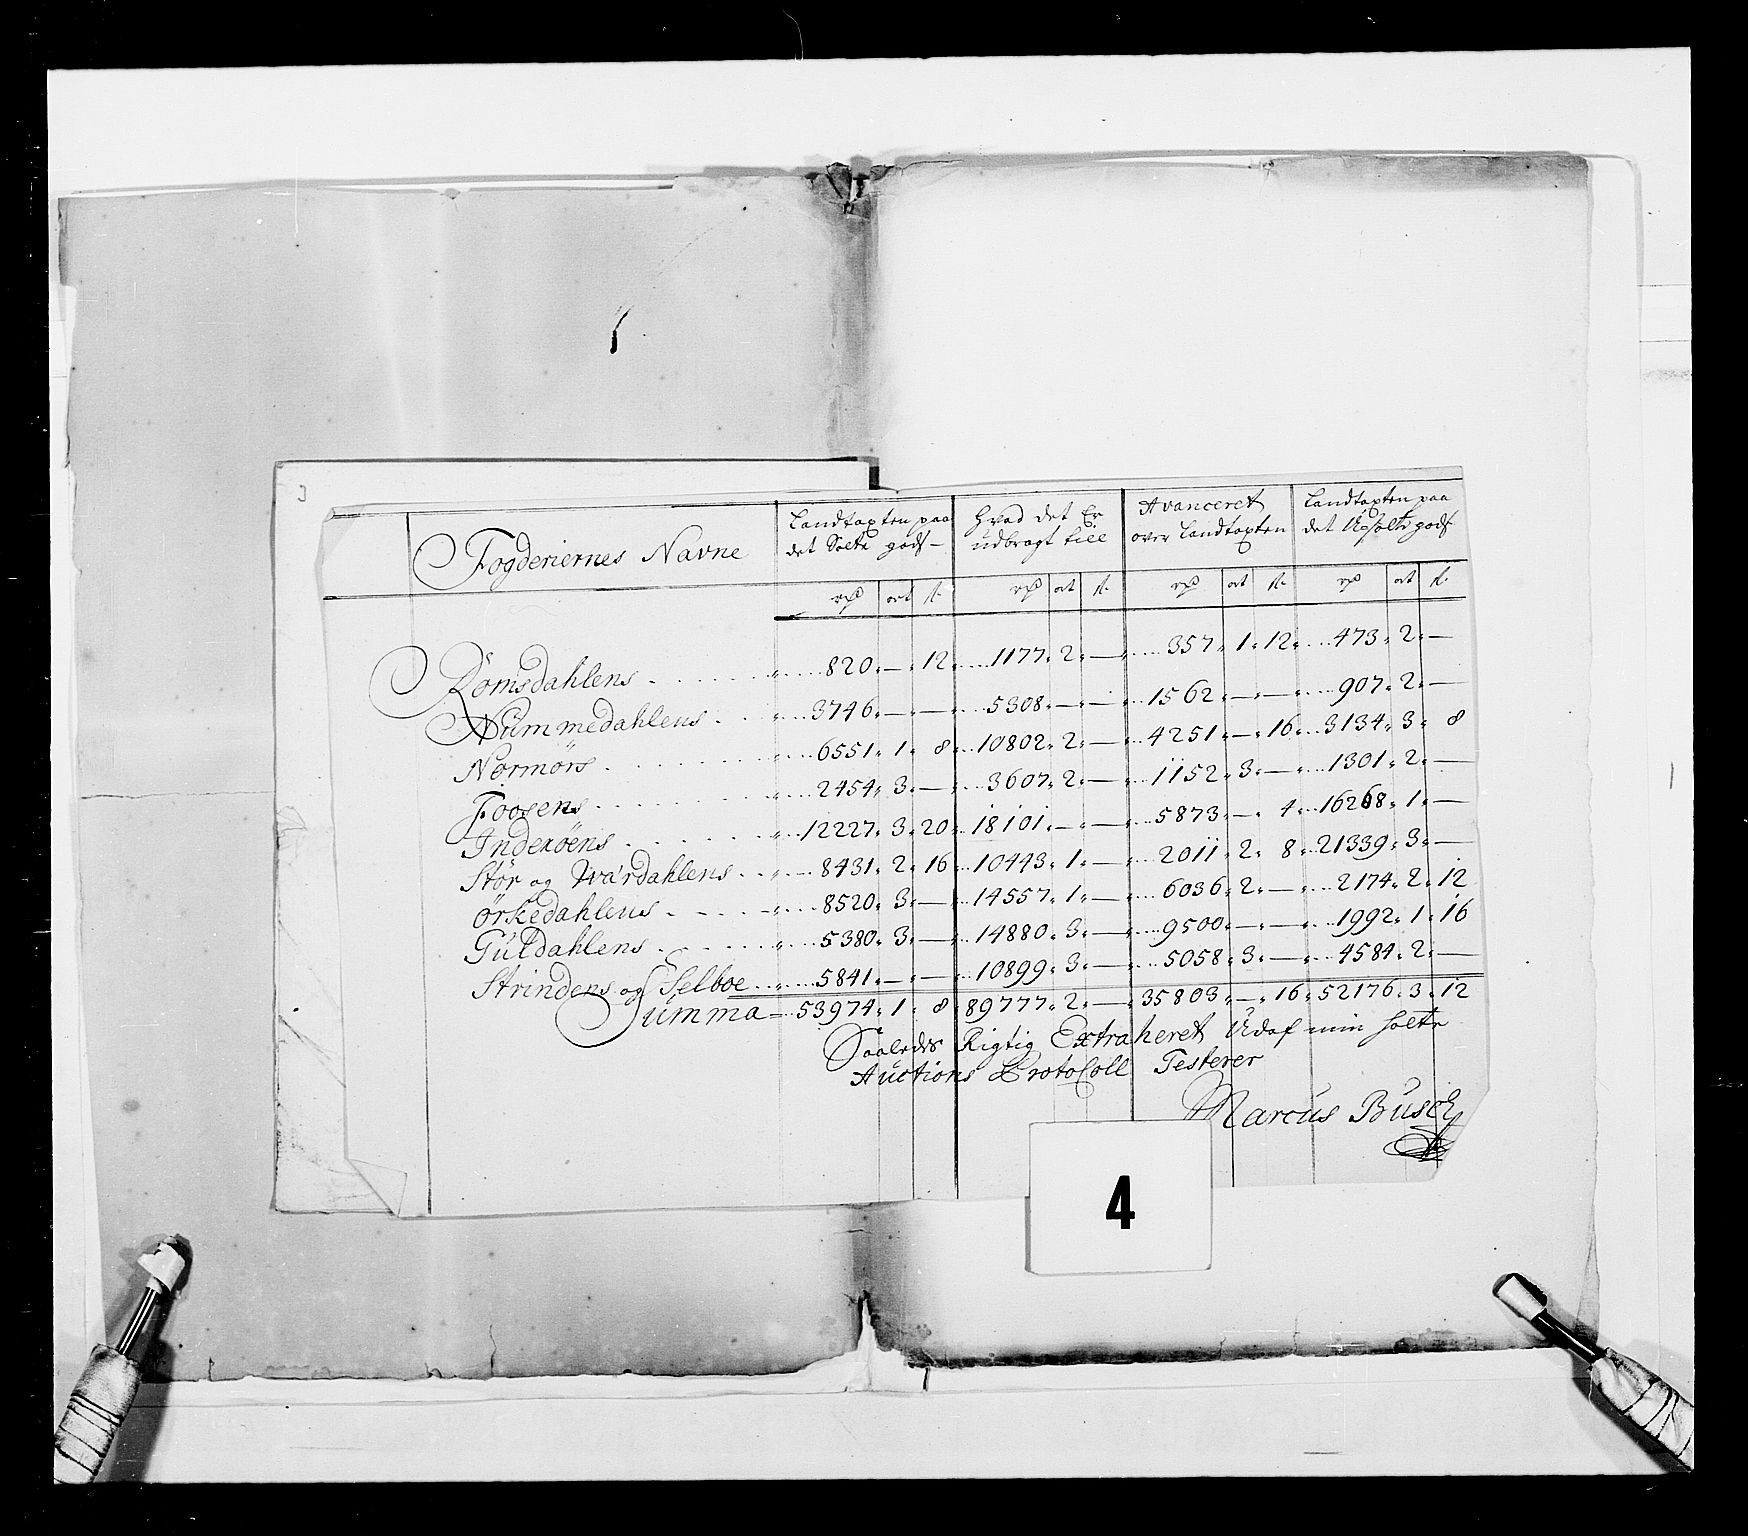 Fogderiernes Navne | Landtaxten paa det Solte gods | Hvad det Er udbragt till | Avanceret over Landtaxten | Landtaxten paa det Usolte gods
rd ort s. | rd ort s. | rd ort s. | rd ort s.
Romsdahlens | 820 — 12 | 1177 2 — | 357 1 12 | 473 2 —
Nummedahlens | 3746 — — | 5308 — — | 1562 — — | 907 2 —
Normørs | 6551 1 8 | 10802 2 — | 4251 — 16 | 3134 3 8
Foosens | 2454 3 — | 3607 2 — | 1152 3 — | 1301 2 —
Inderöens | 12227 3 20 | 18101 — — | 5873 — 4 | 16268 1 —
Stör og Wárdahlens | 8431 2 16 | 10443 1 — | 2011 2 8 | 21339 3 —
örkedahlens | 8520 3 — | 14557 1 — | 6036 2 — | 2174 2 12
Guldahlens | 5380 3 — | 14880 3 — | 9500 — — | 1992 1 16
Strindens og Selboe | 5841 — — | 10899 3 — | 5058 3 — | 4584 2 —
Summa | 53974 1 8 | 89777 2 — | 35803 — 16 | 52176 3 12
Saaledes Rigtig Extraheret Udaf min holte
Auctions Protocoll Testerer
Marcus Busch
4